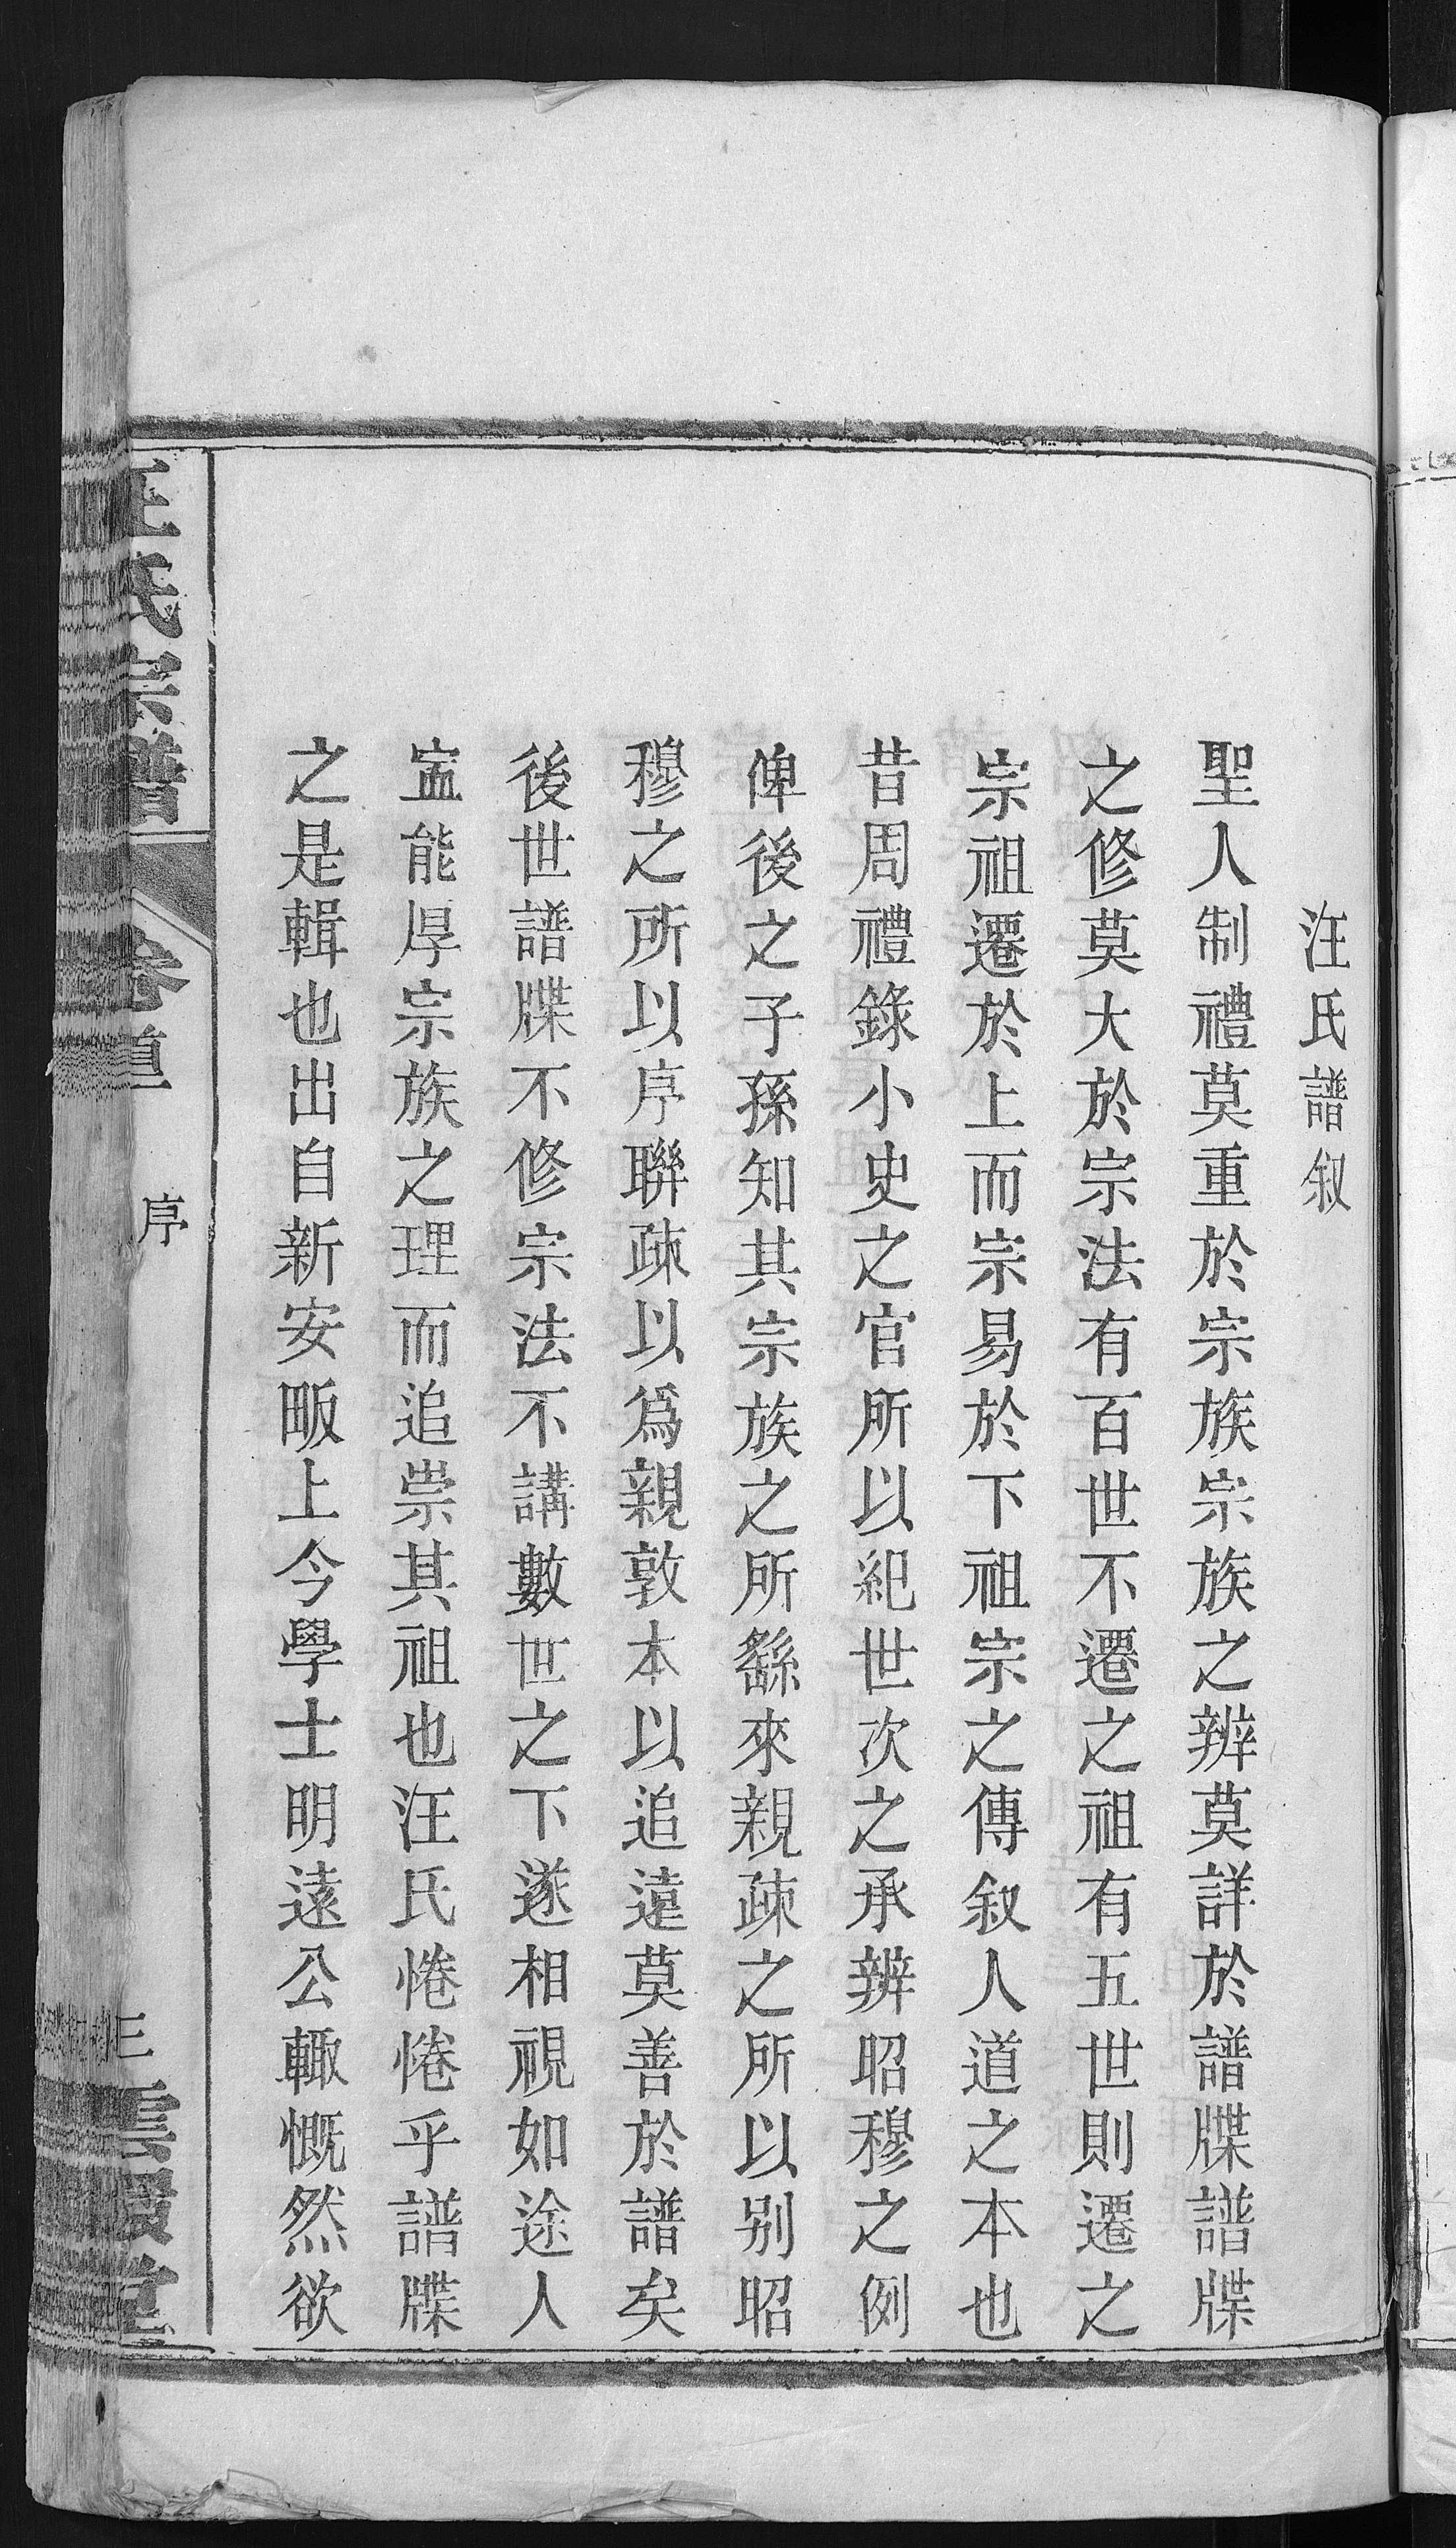 汪氏譜叙
聖人制禮莫重於宗族宗族之辨莫詳於譜牒譜牒
之修莫大於宗法有百世不遷之祖有五世則遷之
宗祖遷於上而宗易於下祖宗之傳叙人道之本也
昔周禮錄小史之官所以紀世次之承辨昭穆之例
俾後之子孫知其宗族之所繇來親疎之所以别昭
穆之所以序聯疎以爲親敦本以追遠莫善於譜矣
後世譜牒不修宗法不講數世之下遂相視如途人
寍能厚宗族之理而追崇其祖也汪氏惓惓乎譜牒
之是輯也出自新安畈上今學士明遠公輙慨然欲
汪氏宗譜 卷首 序 三